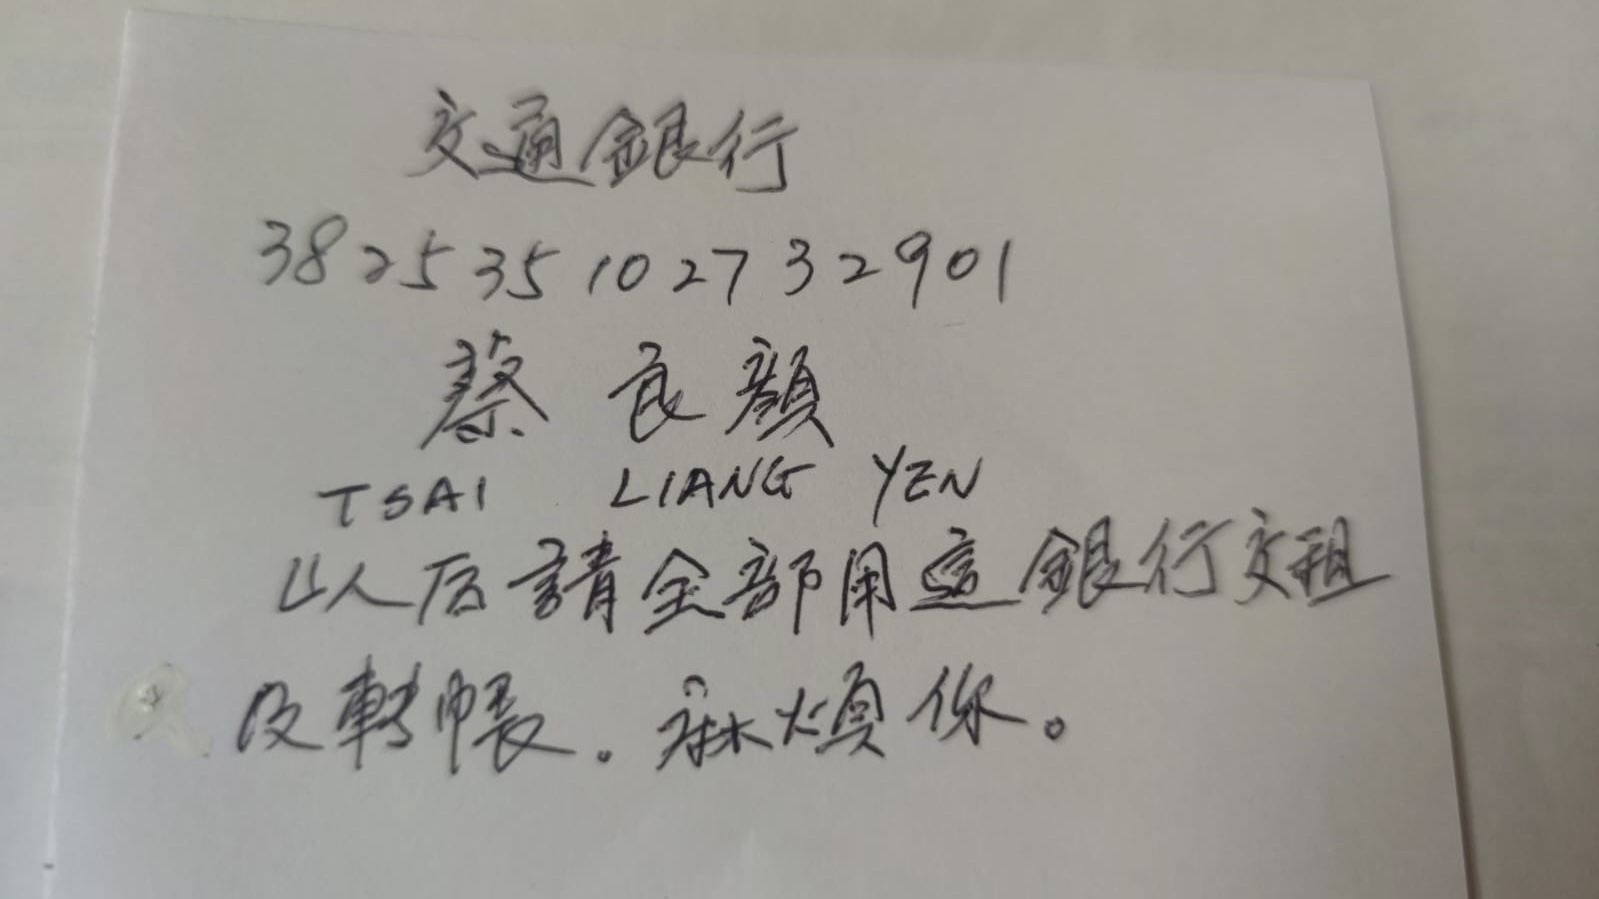 交通銀行
38253510273 2901
蔡良顏
TSAI LIANG YEN
以后請全部用這銀行交租
及轉帳。麻煩你。